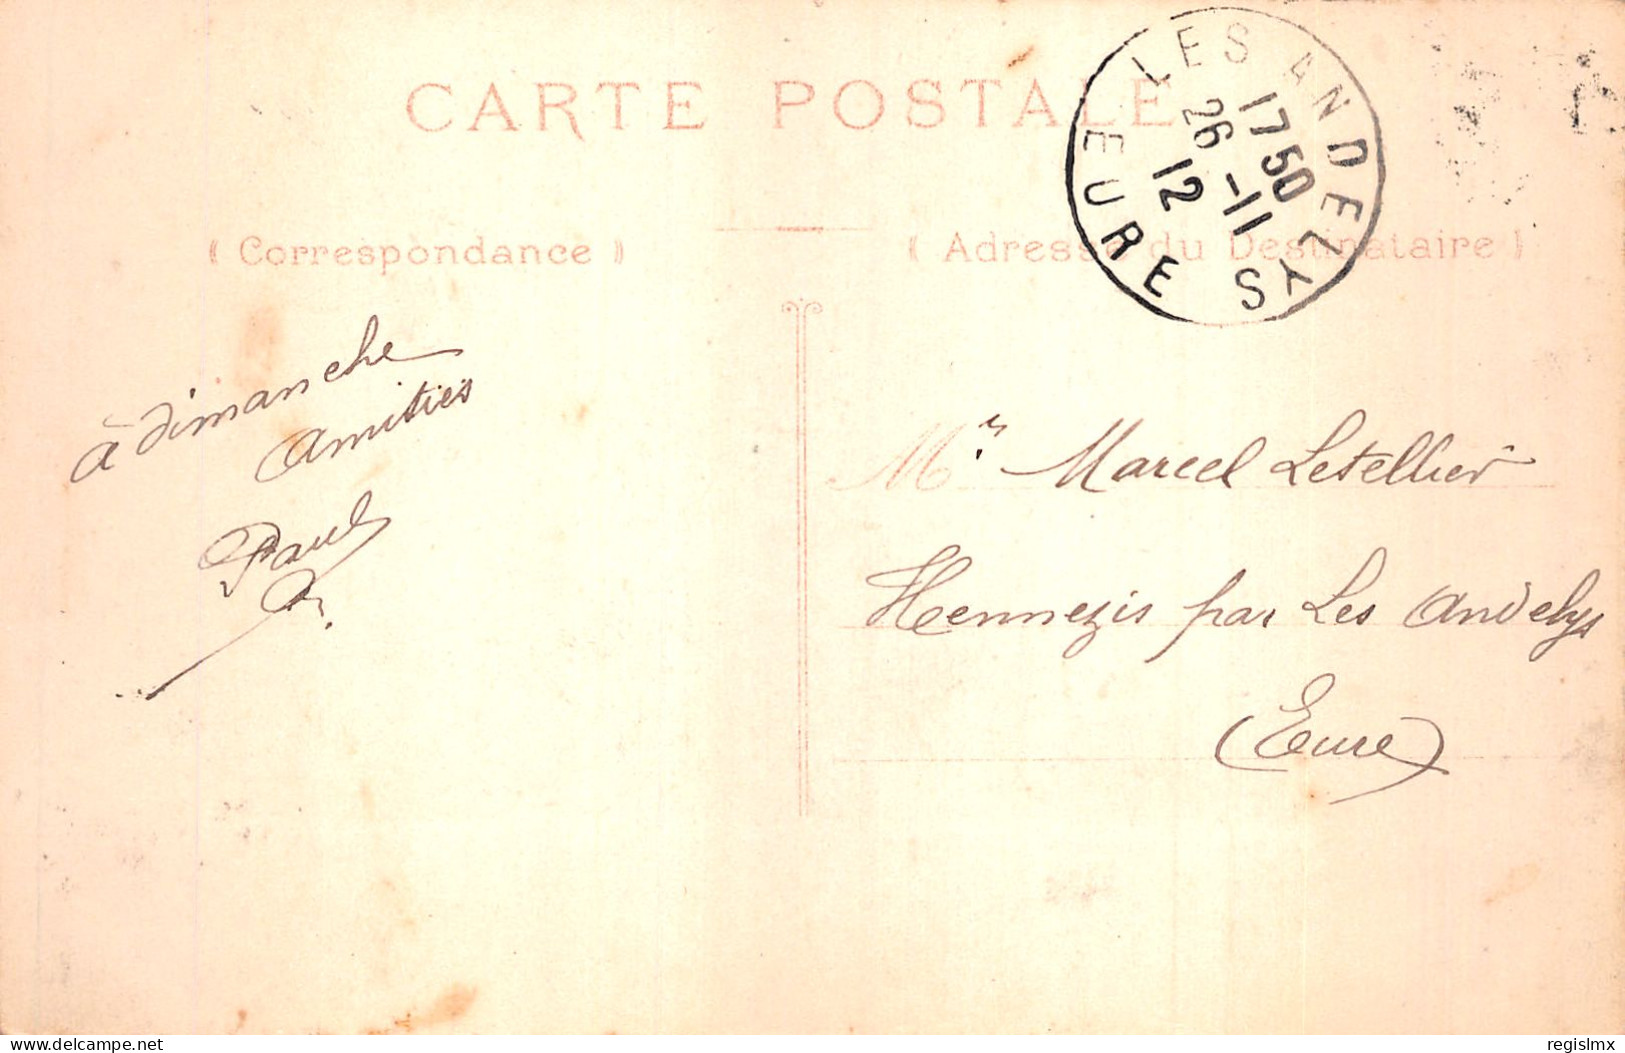 CARTE POSTALE
LES ANDELYS
17 50
26 -11
12
EURE
( Correspondance )
( Adresse du Destinataire )
à dimanche
Amitiés
Paul
Mr Marcel Letellier
Hennezis par Les Andelys
(Eure)
www.delcampe.net
regislmx